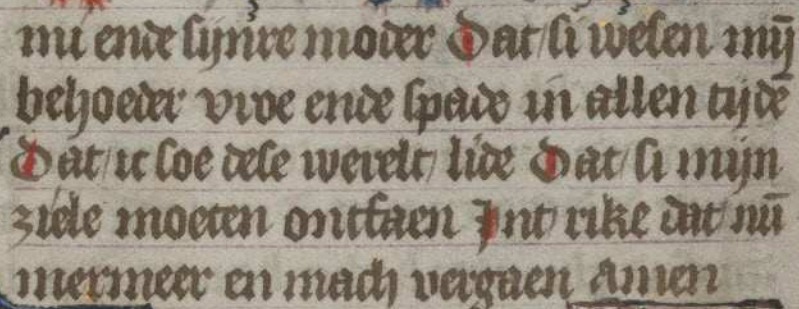 nu ende sijnre moder Dat si wesen mij̄
behoeder vroe ende spade in allen tijde
Dat ic soe dese werelt lide Dat si mijn
ziele moeten ontfaen Int rike dat nū
mermeer en mach vergaen Amen